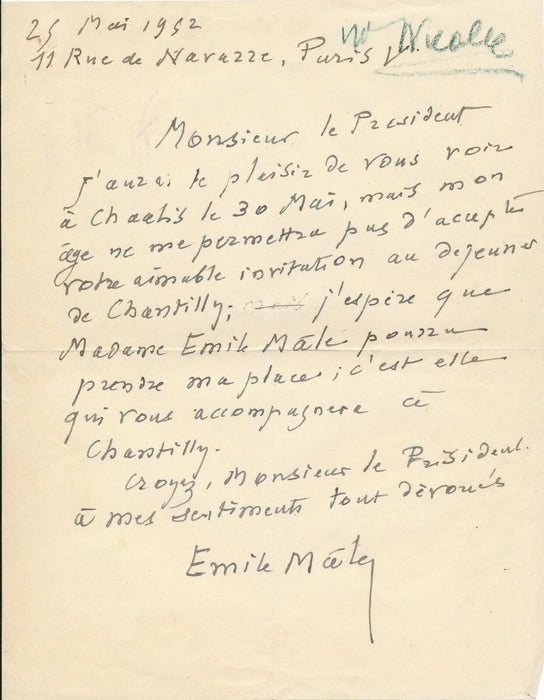 25 Mai 1952
11 Rue de Navarre, Paris V
Nicolle
Monsieur le President
J'aurai le plaisir de vous voir
à Chaalis le 30 Mai, mais mon
âge ne me permettra pas d'accepter
votre aimable invitation au dejeuner
de Chantilly; mais j'espère que
Madame Emile Mâle pourra
prendre ma place; c'est elle
qui vous accompagnera à
Chantilly.
Croyez, Monsieur le Président.
à mes sentiments tout dévoués
Emile Mâle